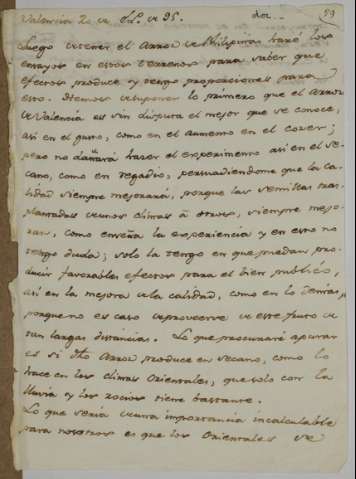 Valencia 20 de de 95.
59
Luego de tener el Arroz de Philipinas haré los
ensayos en estos terrenos para saber que
efectos produce y tengo proporciones para
esto. Hemos de suponer lo primero que el Arroz
de Valencia es sin disputa el mejor que se conoce,
asi en el gusto, como en el aumento en el cozer;
pero no dañará hazer el experimento asi en el se-
cano, como en regadio, persuadiendome que la ca-
lidad siempre mejorará, porque las semillas tras-
plantadas de unos climas á otros, siempre mejo-
ran, como enseña la experiencia y en esto no
tengo duda; solo la tengo en que puedan pro-
ducir favorables efectos para el bien publico,
asi en la mejora de la calidad, como en lo demas,
porque no es caso de proveerse de este fruto de
tan largas distancias. Lo que procuraré apurar
es si dho Arroz produce en secano, como lo
hace en los climas Orientales, que solo con la
lluvia y los rocios tiene bastante.
Lo que seria de una importancia incalculable
para nosotros es que los Orientales se